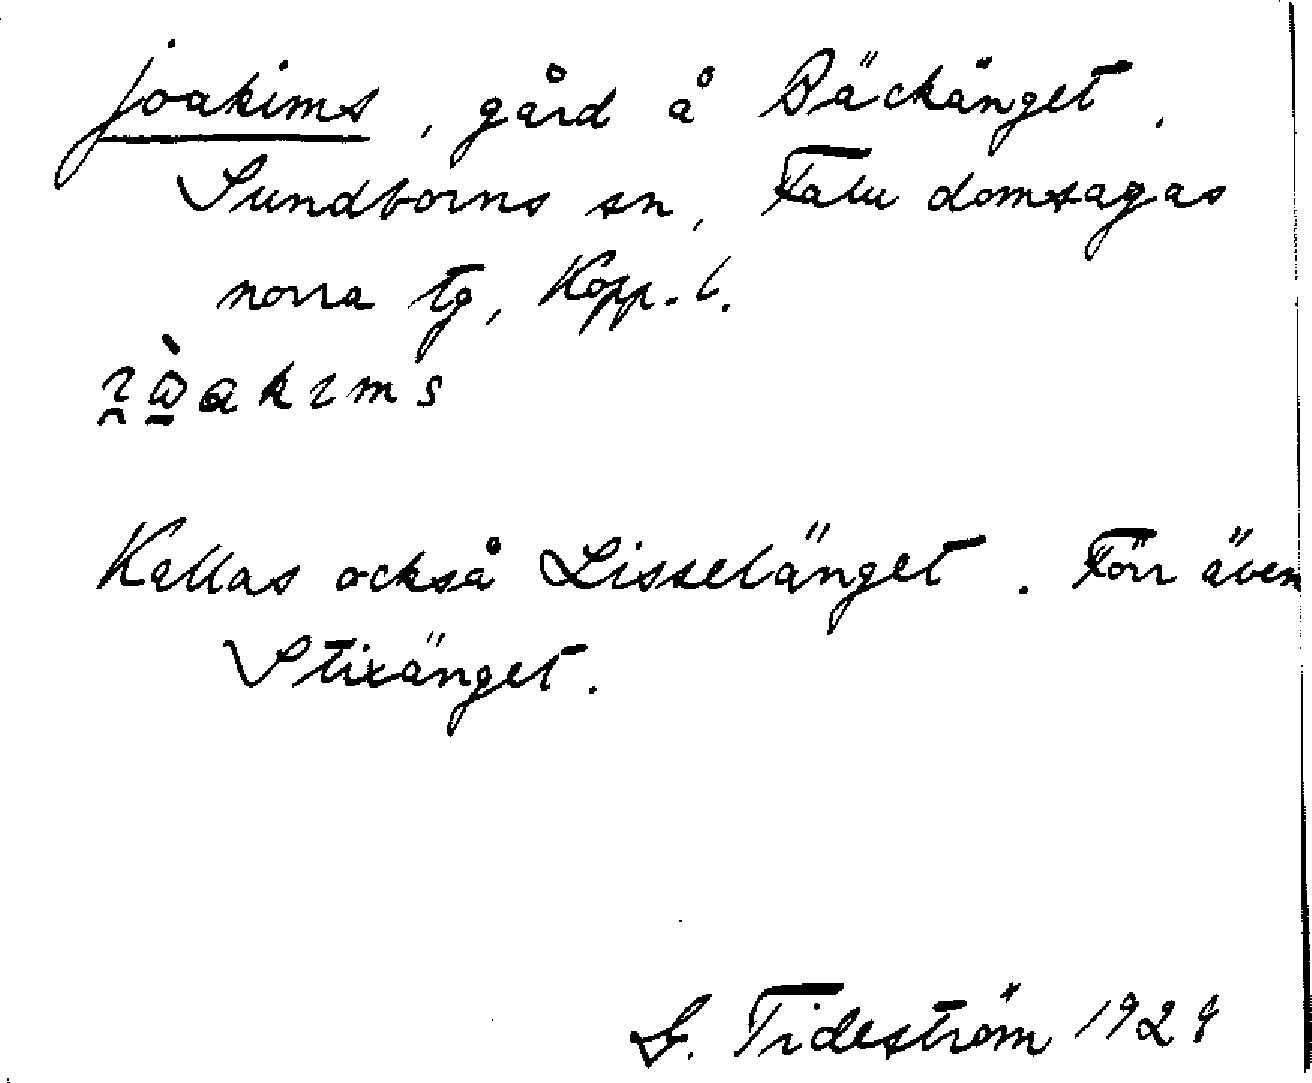 Joakims, gård å Bäckänget,
Sundborns sn, Falu domsagas
norra tg, Kopp. l.
Kallas också Lisselänget. Förr även
Stixänget.
G. Tideström 1929